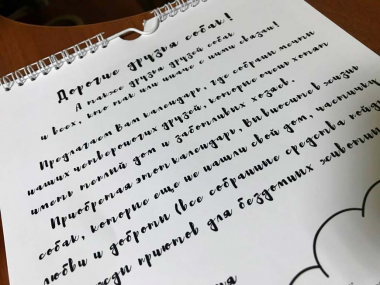 Дорогие друзья собак!
А также друзья друзей собак
и всех, кто так или иначе с ними связан!
Предлагаем Вам календарь, где собраны почти
наших четвероногих друзей, которые очень хотят
иметь теплый дом и заботливых хозяев.
Приобретая этот календарь, Вы вносите в жизнь
собак, которые еще не нашли свой дом, частичку
любви и доброты (все собранные средства пойдут
приютов для бездомных животных